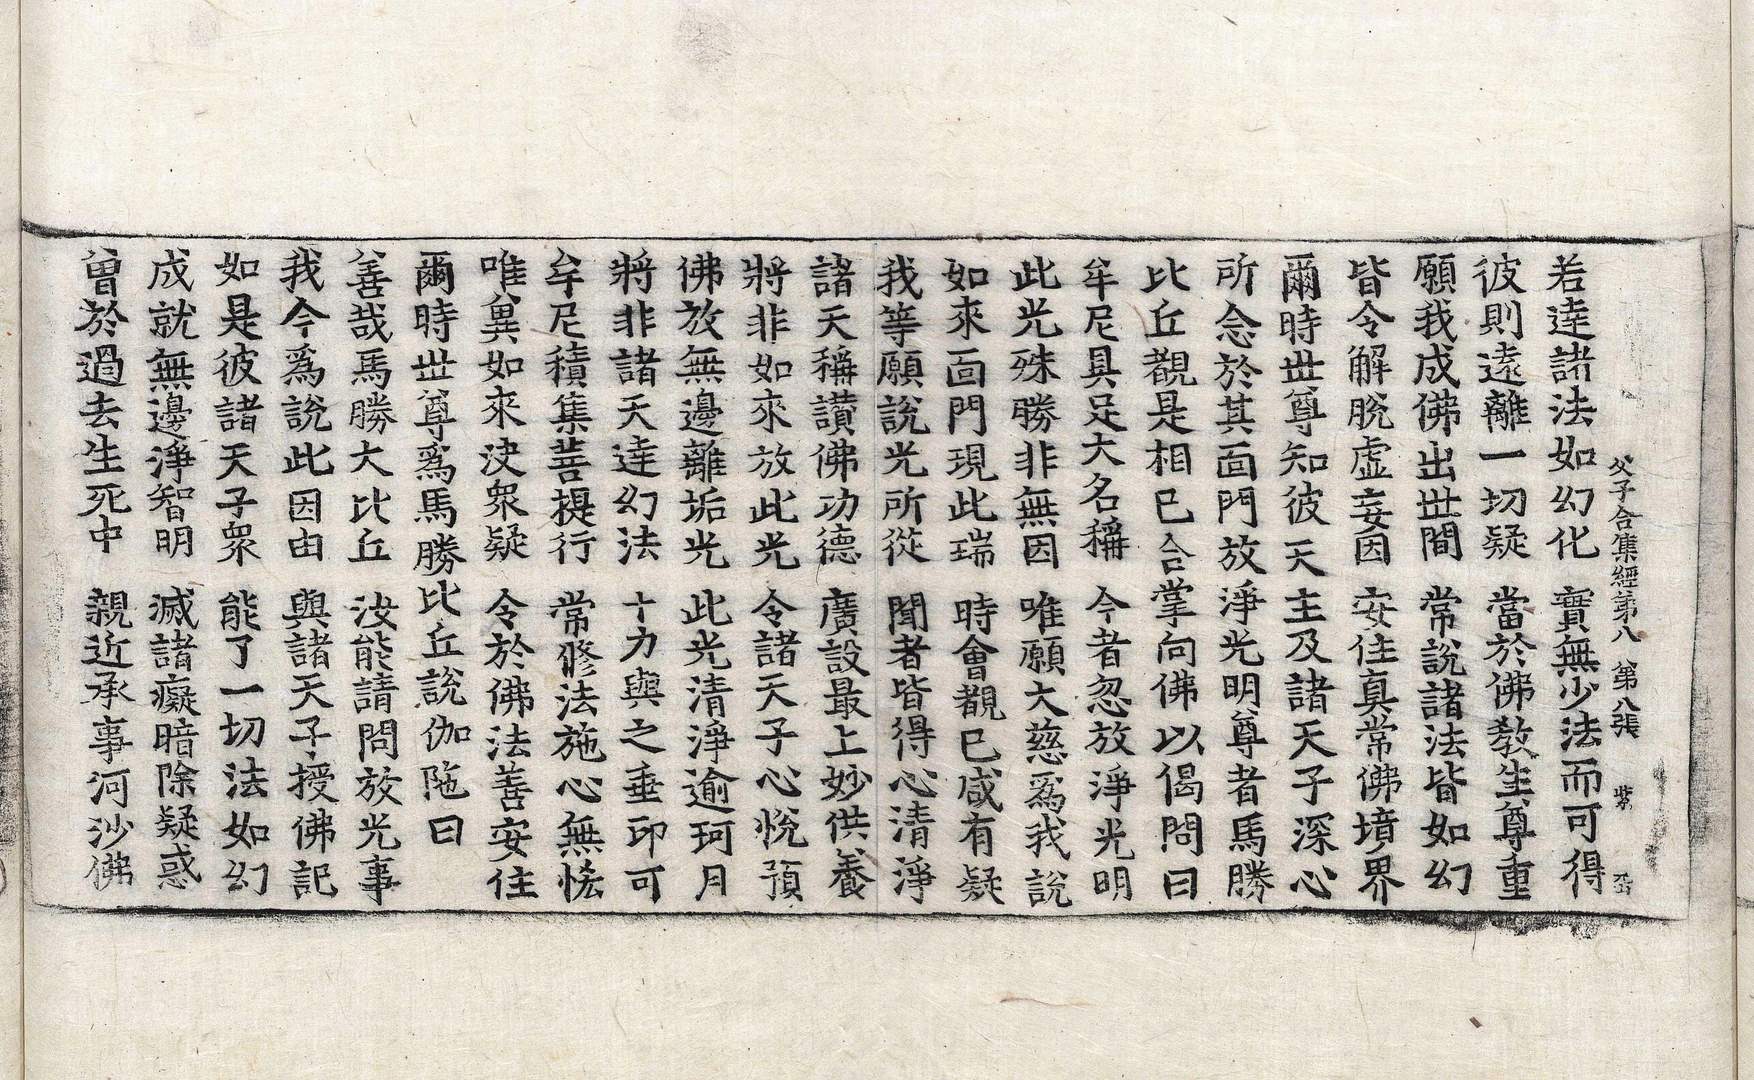 父子合集經第八 第八張 紫
若達諸法如幻化 實無少法而可得
彼則遠離一切疑 當於佛教生尊重
願我成佛出世間 常說諸法皆如幻
皆令解脫虛妄因 安住真常佛境界
爾時世尊知彼天主及諸天子深心
所念於其面門放淨光明尊者馬勝
比丘覩是相已合掌向佛以偈問曰
牟尼具足大名稱 今者忽放淨光明
此光殊勝非無因 唯願大慈為我說
如來面門現此瑞 時會覩已咸有疑
我等願說光所從 聞者皆得心清淨
諸天稱讚佛功德 廣設最上妙供養
將非如來放此光 令諸天子心悅預
佛放無邊離垢光 此光清淨逾珂月
將非諸天達幻法 十力與之垂印可
牟尼積集菩提行 常修法施心無恡
唯冀如來決衆疑 令於佛法善安住
爾時世尊為馬勝比丘說伽陁曰
善哉馬勝大比丘 汝能請問放光事
我今爲說此因由 與諸天子授佛記
如是彼諸天子衆 能了一切法如幻
成就無邊淨智明 滅諸癡暗除疑惑
曾於過去生死中 親近承事河沙佛